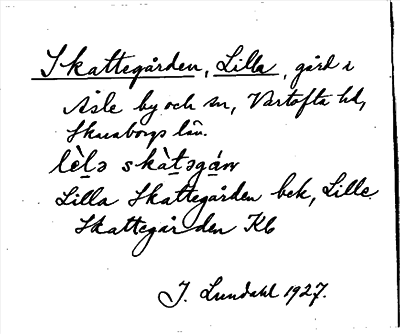 Skattegården, Lilla, gård i
Åsle by och sn, Vartofta hd,
Skaraborgs län.
lè̠lə skàt̠əgán
Lilla Skattegården bek, Lille
Skattegården Kb
J. Lundahl 1927.